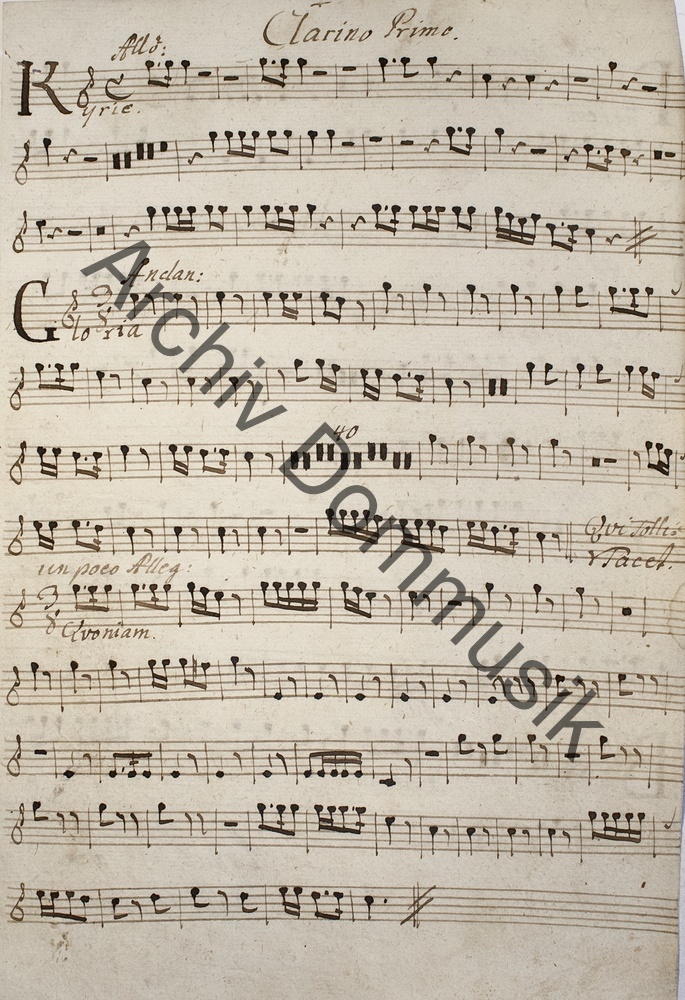 Clarino Primo.
Allo:
Kyrie.
Andan:
Gloria
40
Qui Tollis
Tacet.
un poco Alleg:
Quoniam.
Archiv Dommusik